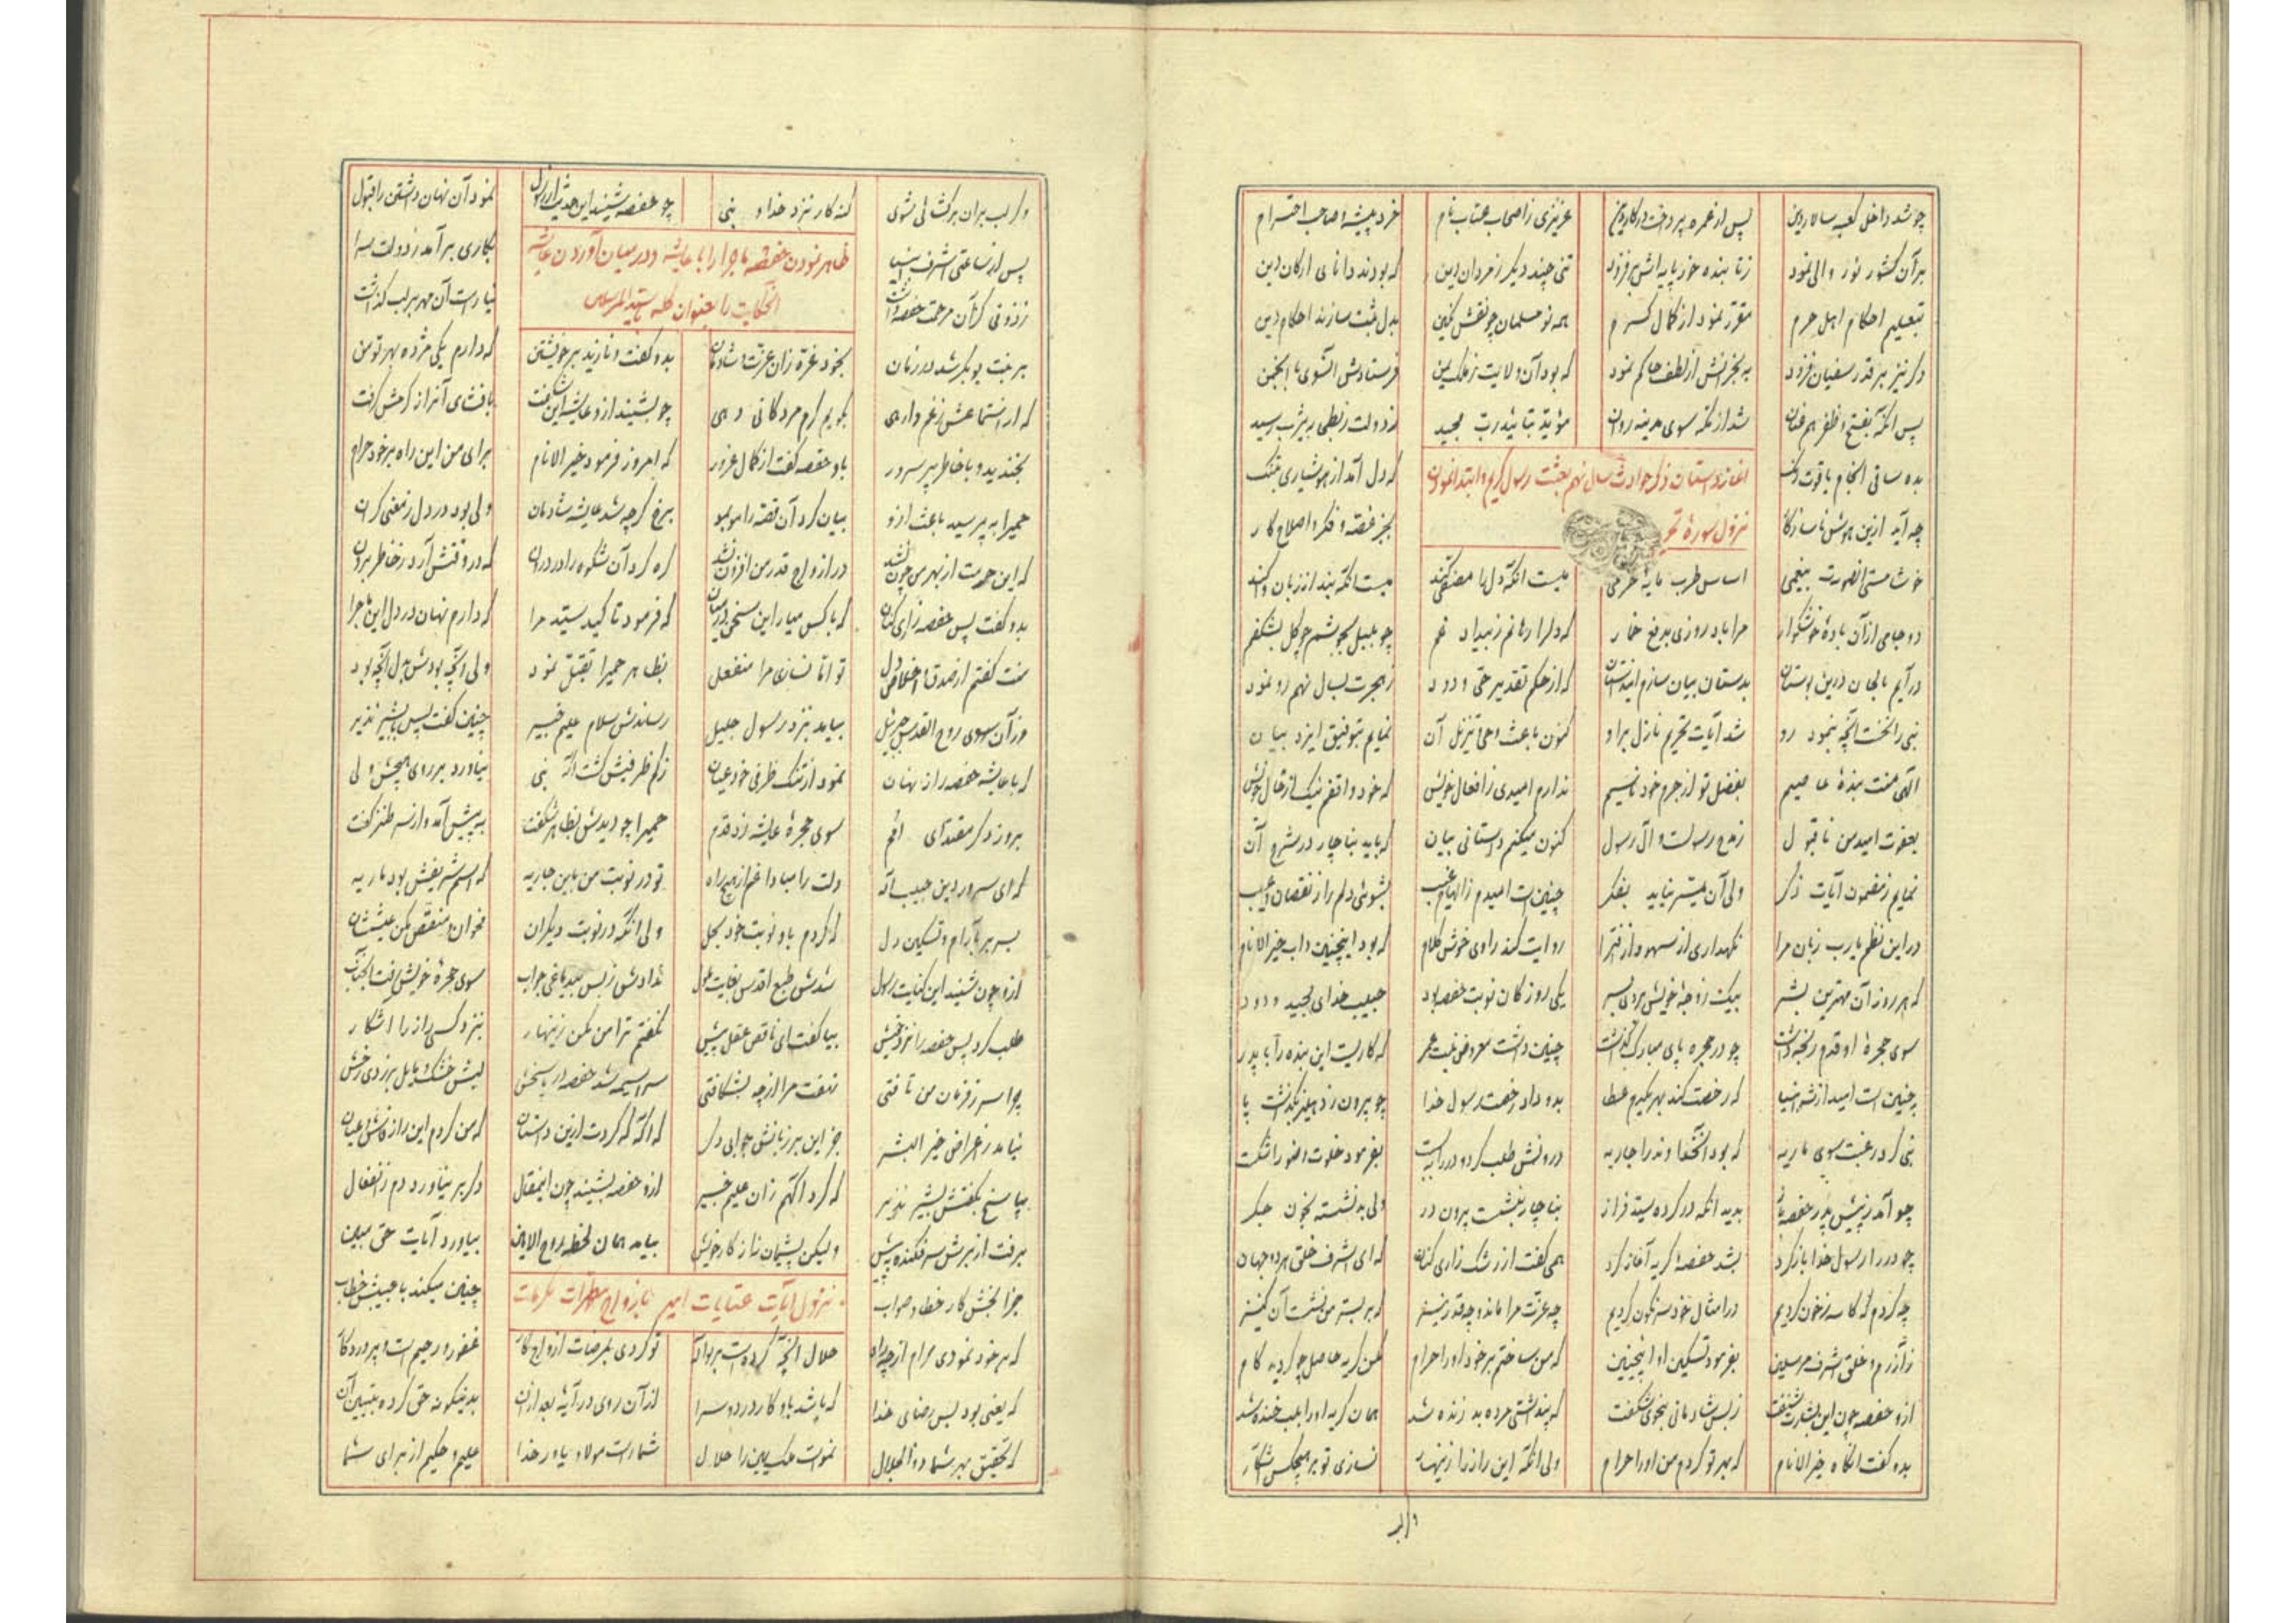 چو شد داخل کعبه سالار دین پس از عمره پرداخت در کار دین عزیزی ز اصحاب عتاب نام خرد پیشه و صاحب احترام
بر آن کشور نور والی نمود ز تا بنده خور پایه اش بر فزود تنی چند دیگر ز مردان دین که بودند دانای ارکان دین
بتعلیم احکام اهل حرم مقرر نمود از کمال کرم همه نو مسلمان چو نقش نگین بدل ثبت سازند احکام دین
دگر نیز بر قدر سفیان فزود به بحرانش از لطف حاکم نمود که بود آن ولایت ز ملک یمن فرستادش آنسوی با انجمن
پس آنکه بفتح و ظفر هم عنان شد از مکه سوی مدینه روان مؤید بتائید رب مجید ز دولت ز بطحی به یثرب رسید
آغاز داستان ذکر حوادث سال نهم بعثت رسول کریم و ابتدا نمودن
نزول سوره
بده ساقی آنجام یاقوت رنگ که دل آمد از هوشیاری بتنگ
چه آید ازین هوش ناسازگار بجز غصه و فکر و اصلاح کار
خوشا مستی انصورت بیغمی اساس طرب مایه خرمی
دو جامی از آن باده خوشگوار مرا باد روزی بدفع خمار که دلرا رهانم ز بیداد غم چو بلبل بجوشم چو گل بشکفم
در آیم بالحان درین بوستان بدستان بیان سازم این داستان که از حکم تقدیر حی ودود ز هجرت بسال نهم رو نمود
نبی را نخست آنچه بنمود رو شد آیات تحریم نازل بر او کنون باعث وحی و تنزیل آن نمایم بتوفیق ایزد بیان
الهی منت بنده عاصیم بفضل تو از جرم خود ندارم امیدی ز افعال خویش که خود واقفم نیک از حال خویش
بعفوت امید من ناقبول ز مدح رسولست و آل رسول کنون میکنم داستانی بیان که باید بناچار در شرح آن
نمایم ز مضمون آیات ذکر ولی آن میسر نیاید بفکر چنین است امیدم ز الهام غیب بشوئی دلم را ز نقصان و عیب
در این نظم یارب زبان مرا نگهداری از سهو و از افترا روایت کند راوی خوش کلام که بود اینچنین داب خیر الانام
که هر روز آن مهترین بشر بیک زوجه خویش بردی بسر یکی روز کان نوبت حفصه بود حبیب خدای مجید و ودود
سوی حجره او قدم رنجه داشت چو در حجره پای مبارک گذاشت چنین داشت معروض بنت عمر که کاریست این بنده را با پدر
چنین است امید از شه انبیا که رخصت کند بهر یکدم عطا بدو داد رخصت رسول خدا چو بیرون ز دهلیز بگذشت پا
نبی کرد رغبت سوی ماریه که بود آنخداوند را جاریه درونش طلب کرد و در را ببست بفرمود خلوت و انرا شکست
چو آمد ز پیش پدر حفصه باز بدید آنکه در کرده سید فراز بناچار بنشست بیرون در ولی بد نشسته بخون جگر
چو در را رسول خدا باز کرد بشد حفصه و گریه آغاز کرد همی گفت از رشک زاری کنان که ای اشرف خلق هر دو جهان
چه کردم که کاسه ز خون کردیم در امثال خود سرنگون کردیم چه عزت مرا ماند و چه قدر نیز که بر بستر من نشست آن کنیز
ز آزرم و خلق اشرف مرسلین بفرمود تسکین او اینچنین که من ساختم بر خود او را حرام مکن گریه حاصل چو گردید کام
ازو حفصه چون این بشارت شنفت ز بس شادمانی بخوی شگفت که پنداشتی مرده بد زنده شد همان گریه او را بلب خنده شد
بدو گفت آنگاه خیر الانام که بهر تو کردم من او را حرام ولی آنکه این راز را زینهار نسازی تو بر هیچکس آشکار
و گر لب بر آن برگشائی شوی گنه کار نزد خدا و نبی چو حفصه شنید این حدیث از رسول نمود آن نهان داشتن را قبول
ظاهر نمودن حفصه ماجرا را با عایشه و در میان آوردن عایشه
انحکایت را بعنوان گله با سید المرسلین
پس از ساعتی اشرف انبیا بکاری بر آمد ز دولت سرا
ز ذوقی کزان مرحمت حفصه داشت نیارست آن مهر بر لب گذاشت
بر بنت بوبکر شد در زمان بخود غره زان عزت و شادمان بدو گفت و نازید بر خویشتن که دارم یکی مژده بهر تو من
که از استماعش ز غم وارهی بگویم گرم مژدگانی دهی چو بشنید ازو عایشه این شگفت بافشای آن راز گرمش گرفت
بخندید و با خاطر پر سرور باو حفصه گفت از کمال غرور که امروز فرمود خیر الانام برای من این راه بر خود حرام
حمیرا به پرسید باعث ازو بیان کرد آن قصه را موبمو برخ گرچه شد عایشه شادمان ولی بود در دل ز معنی گران
که این حرمت از بهر من چون نشد در ازواج قدر من افزون نشد گره کرد آن شکوه را در درون که در وقتش آرد ز خاطر برون
بدو گفت پس حفصه زاری کنان که با کس میار این سخن در میان که فرمود تاکید سید مرا که دارم نهان در دل این ماجرا
منت گفتم از صدق و اخلاص دل تو امّا نسازی مرا منفعل بظاهر حمیرا تقبل نمود ولی آنچه بودش بدل آنچه بود
وز آن سوی روح القدس جبرئیل بیامد بنزد رسول جلیل رساندش سلام علیم خبیر چنین گفت پس با بشیر نذیر
که با عایشه حفصه راز نهان نمود از تنک ظرفی خود عیان ز کم ظرفیش گشت آگه نبی نیاورد بر روی هیچش ولی
بروز دگر مقتدای امم سوی حجره عایشه زد قدم حمیرا چو دیدش بظاهر شگفت به پیش آمد و از سر طنز گفت
که ای سرور دین حبیب اله دلت را مبادا غم از هیچ راه تو در نوبت من باین جاریه که اسم شریفش بود ماریه
بسر بر بآرام و تسکین دل که کردم باو نوبت خود بحل ولی آنکه در نوبت دیگران مخوان و منغص مکن عیششان
ازو چون شنید این کنایت رسول شدش طبع اقدس بغایت ملول ندادش ز بس بیدماغی جواب سوی حجره خویش رفت آنجناب
طلب کرد پس حفصه را نزد خویش بیا گفت ای ناقص عقل پیش نگفتم ترا من مکن زینهار بنزد کسی راز را آشکار
چرا سر ز فرمان من تافتی نهفت مرا از چه بشکافتی سراسیمه شد حفصه در پاسخش لبش خشک و مایل بزردی رخش
نیامد ز اعراض خیر البشر جز این بر زبانش جوابی دگر که آگه که کردت ازین داستان که من کردم این راز فاش و عیان
بپاسخ بگفتش بشیر نذیر که کرد آگهم زان علیم خبیر ازو حفصه بشنید چون اینمقال دگر بر نیاورد دم ز انفعال
برفت از برش سر فکنده به پیش ولیکن پشیمان نه از کار خویش بیامد همان لحظه روح الامین بیاورد آیات حق مبین
نزول آیات عتابات امیر بازواج مطهرات مکرمات
جزا بخش کار خطا و صواب چنین میکند با حبیبش خطاب
که بر خود نمودی حرام از چه راه حلال آنچه کرده است بر تو اله تو کردی بمرضات ازواج کار غفور و رحیم است پروردگار
که یعنی بود بس رضای خدا که باشد باو کار در دو سرا از آن روی در آیه بعد از آن بدینگونه حق کرده تبیین آن
که تحقیق بهر شما ذو الجلال نمودست حل یمین را حلال شمارست مولا و یاور خدا علیم و حکیم از برای شما
و گر لب